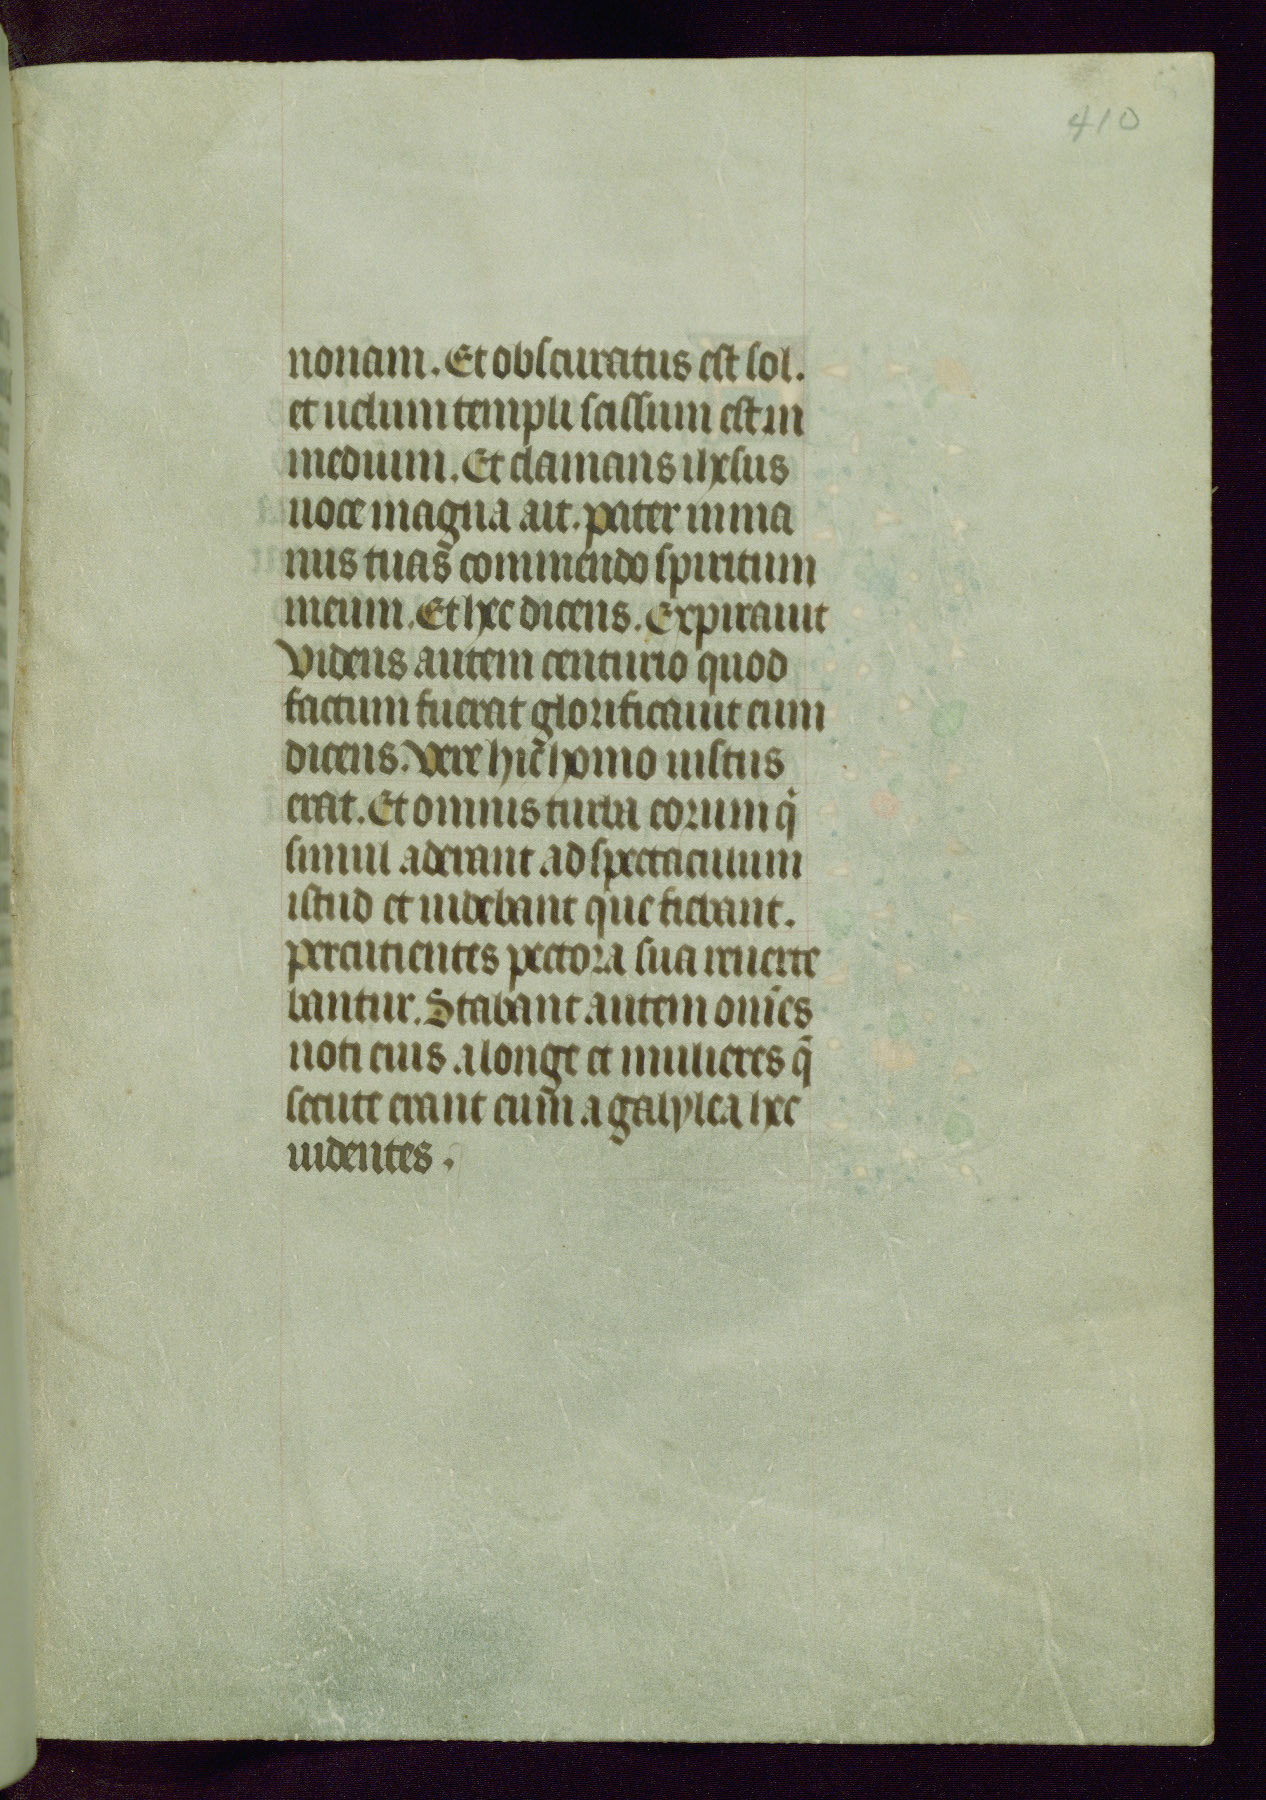 410
nonam. Et obscuratus est sol.
et uelum templi scissum est in
medium. Et clamans ihesus
uoce magna ait. pater in ma
nus tuas commendo spiritum
meum. Et hec dicens. Expirauit
Videns autem centurio quod
factum fuerat glorificauit eum
dicens. Vere hic homo iustus
erat. Et omnis turba eorum q̄
simul aderant ad spectaculum
istud et uidebant que fiebant.
percutientes pectora sua reuerte
bantur. Stabant autem om̄es
noti eius a longe et mulieres q̄
secute erant eum a galylea hec
uidentes.